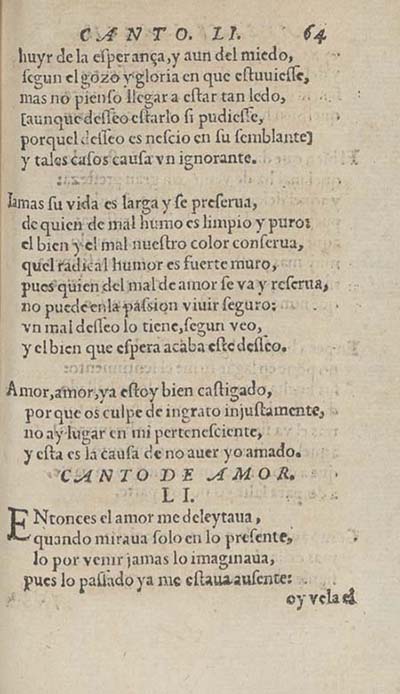 CANTO. LI. 64
huyr de la esperança, y aun del miedo,
segun el gozo y gloria en que estuuiesse,
mas no pienso llegar a estar tan ledo,
[aunque desseo estarlo si pudiesse,
porquel desseo es nescio en su semblante]
y tales casos causa vn ignorante.
Iamas su vida es larga y se preserua,
de quien de mal humo es limpio y puro:
el bien y el mal nuestro color conserua,
quel radical humor es fuerte muro,
pues quien del mal de amor se va y reserua,
no puede enla passion viuir seguro:
vn mal desseo lo tiene, segun veo,
y el bien que espera acaba este desseo.
Amor, amor, ya estoy bien castigado,
porque os culpe de ingrato injustamente,
no ay lugar en mi pertenesciente,
y esta es la causa de no auer yo amado.
CANTO DE AMOR.
LI.
ENtonces el amor me deleytaua,
quando miraua solo en lo presente,
lo por venir jamas lo imaginaua,
pues lo passado ya me estaua ausente:
oy vela el